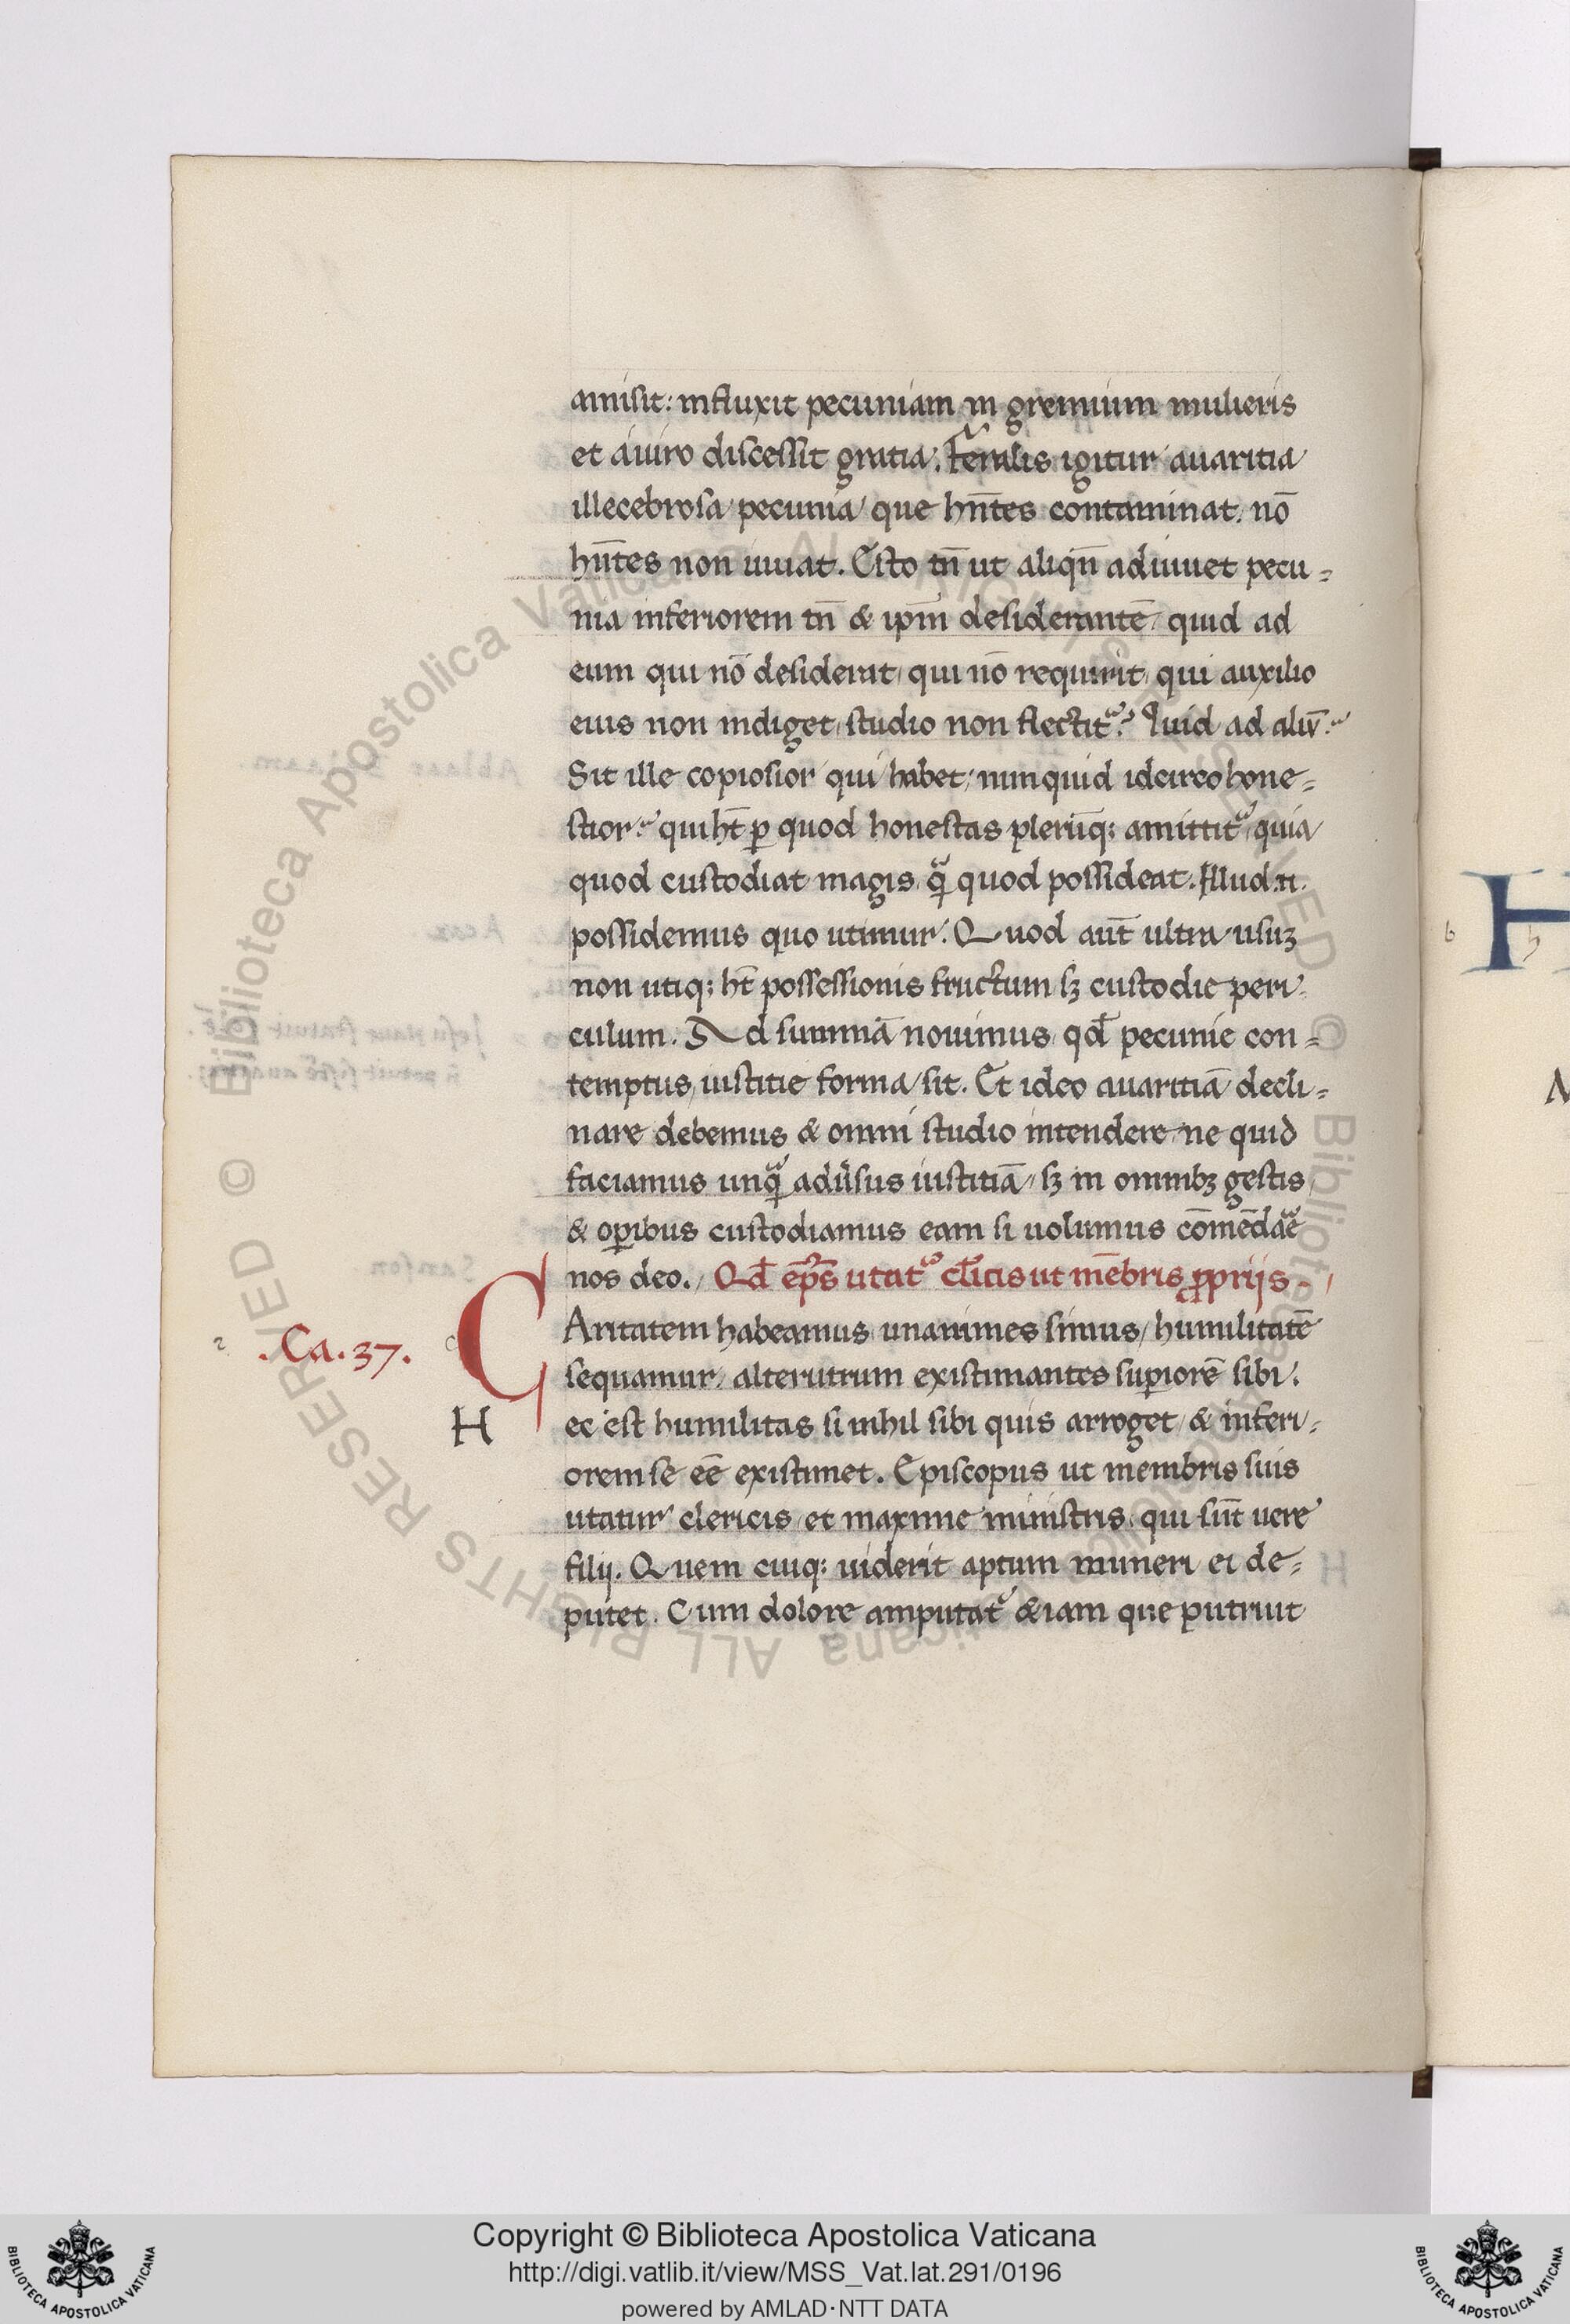 amisit: influxit pecuniam in gremium mulieris
et a uiro discessit gratia. Feralis igitur auaritia
illecebrosa pecunia que hñtes contaminat. nō
hñtes non iuuat. Esto tñ ut aliqñ adiuuet pecu=
nia inferiorem tñ & ipm̄ desiderantē quid ad
eum qui nō desiderat, qui nō requirit, qui auxilio
eius non indiget, studio non flectit᷑? Quid ad aliū?
Sit ille copiosior qui habet: nunquid idcirco hone=
stior? qui ht̄ ꝑ quod honestas plerūq; amittit᷑, quia
quod custodiat magis, qᷓ quod possideat. Illud.n.
possidemus quo utimur. Quod aūt ultra usuꝫ
non utiq; ht̄ possessionis fructum sꝫ custodie peri-
culum. Ad summā nouimus, qd̄ pecunie con=
temptus, iustitie forma sit. Et ideo auaritiā decli=
nare debemus & omni studio intendere ne quid
faciamus unqᷓ adūsus iustitiā, sꝫ in omnibꝫ gestis
& oꝑibus custodiamus eam si uolumus cōmēdāe
nos deo. Qd̄ ep̄s utat᷑ cl̄icis ut mēbris ꝓprijs.
.Ca. 37. CAritatem habeamus, unanimes simus, humilitatē
sequamur, alterutrum existimantes suꝑiorē sibi.
H ec est humilitas si nihil sibi quis arroget & inferi=
orem se ēe existimet. Episcopus ut membris suis
utatur clericis et maxime ministris, qui sūt uere
filij. Quem cuiq; uiderit aptum muneri ei de=
putet. Cum dolore amputat᷑ & iam que putruit
H
Copyright © Biblioteca Apostolica Vaticana
http://digi.vatlib.it/view/MSS_Vat.lat.291/0196
powered by AMLAD·NTT DATA